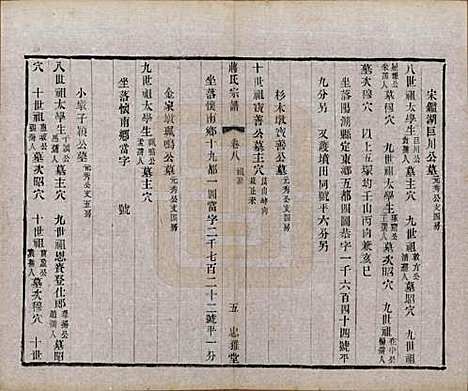 宋蠶湖巨川公墓 元秀公支四房
八世祖太學生 巨川公 清蔣人 墓主穴 九世祖 敦方公 清蔣人 墓昭穴 九世祖
墓次穆穴 以上五塚均壬山丙向兼亥巳
坐落陽湖縣定東鄉五都四圖恭字一千六百四十四號平六分另
九分另 又護墳田同號平六分另
杉木墩寶善公墓 元秀公支四房
十世祖寶善公墓主穴 艮山坤向
蔣氏宗譜 卷八
五 忠雅堂
坐落懷南鄉十九都一圖當字二千七百二十二號平一分
金家墩珮鳴公墓 元秀公支四房
九世祖太學生 珮鳴公 墓主穴
坐落懷南鄉當字 號
小墩子穎公墓 元秀公支五房
八世祖太學生 墓主穴 九世祖恩賚登仕郎 墓昭
穴 十世祖 墓次昭穴 九世祖 墓次穆穴 十世